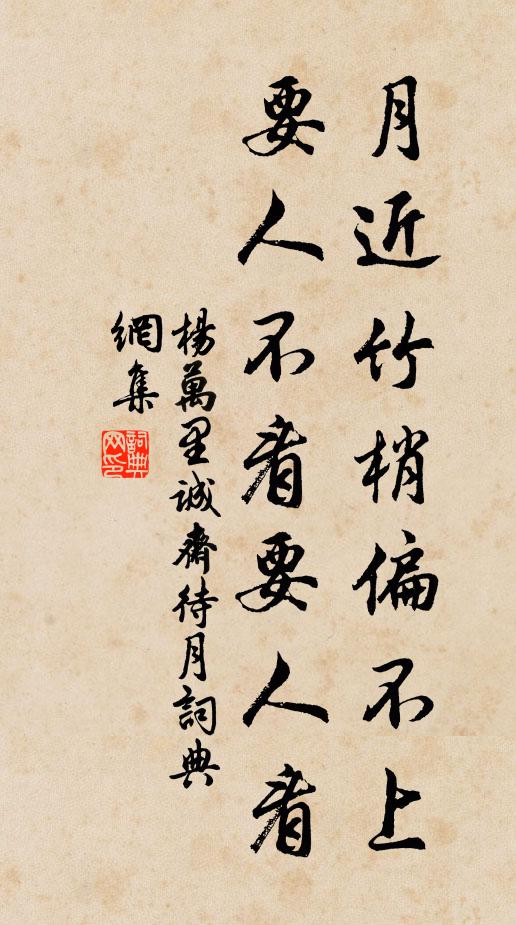 月近竹梢偏不上
要人不看要人看
楊萬里誠齋待月詞典
網集
詞典
网印